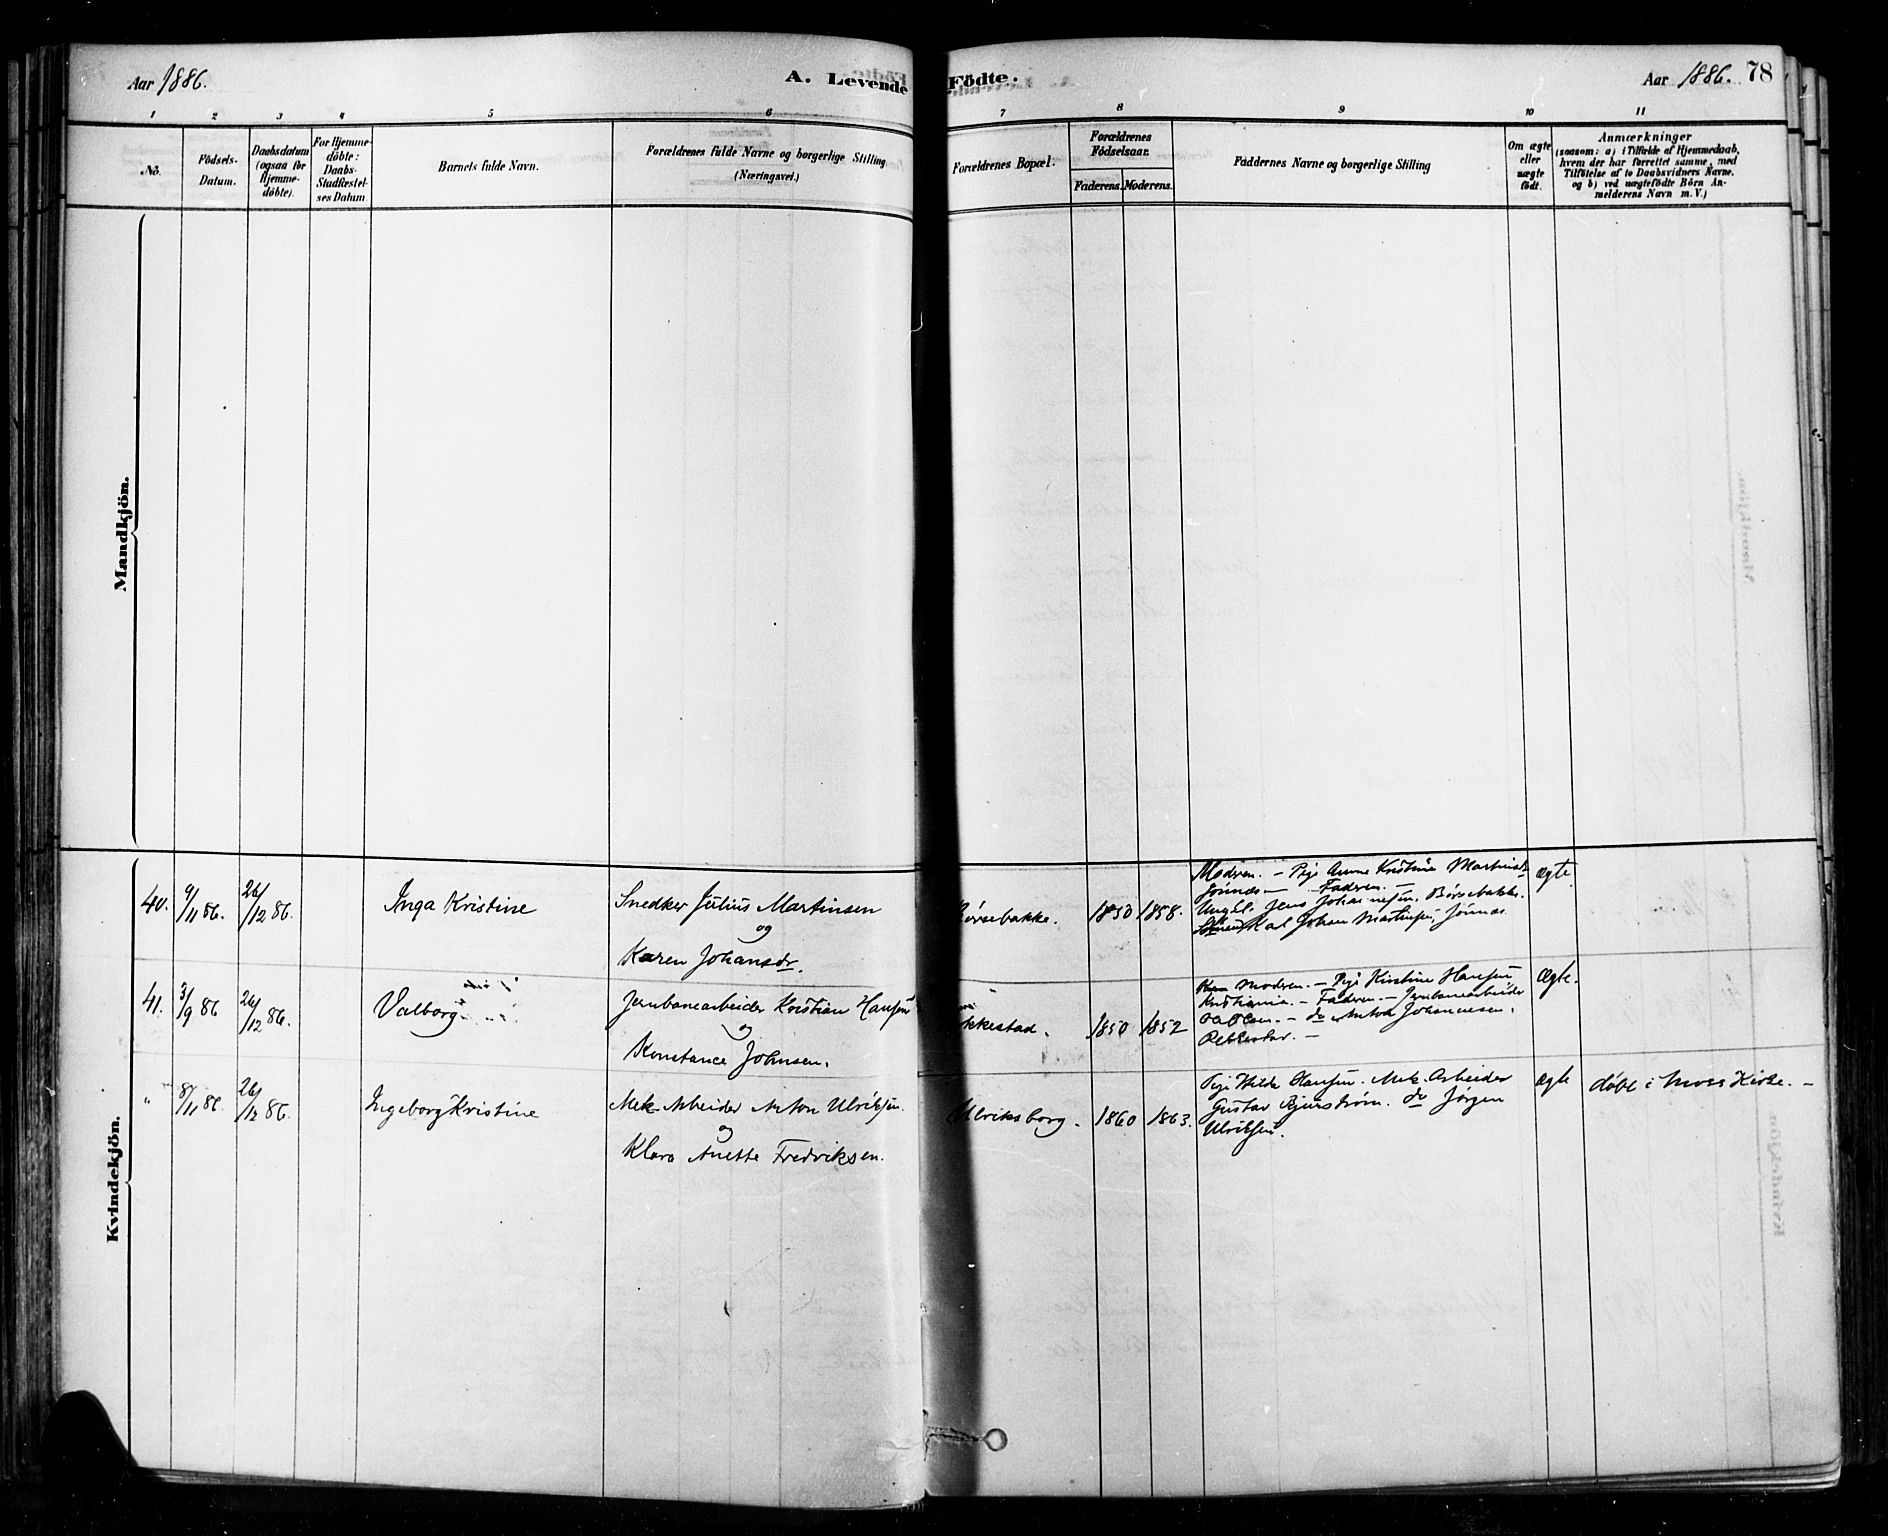 Aar 1886.
A. Levende Födte.
Aar 1886. 78
1 2 3 4 5 6 7 8 9 10 11
No.
Födsels-
Datum.
Daabsdatum
(ogsaa for
Hjemme-
döbte).
For Hjemme-
döbte:
Daabs-
Stadfæstel-
ses Datum
Barnets fulde Navn.
Forældrenes fulde Navne og borgerlige Stilling
(Næringsvei.)
Forældrenes Bopæl.
Forældrenes
Födselsaar.
Faderens. Moderens.
Faddernes Navne og borgerlige Stilling
Om ægte
eller
uægte
födt.
Anmærkninger
(saasom: a) i Tilfælde af Hjemmedaab,
hvem der har forrettet samme, med
Tilföielse af to Daabsvidners Navne,
og b) ved uægtefödte Börn An-
melderens Navn m. V.)
Mandkjön.
Kvindekjön.
40. 9/11 86. 26/12 86. Inga Kristine
Snedker Julius Martinsen
og
Karen Johansdr.
Börsebakke. 1850 1858.
Modren. - Pige Anne Kristine
- Fadren. -
Ungk. Jens Johannesen, Börsebakke.
Karl Johan Martinsen,
ægte
41. 3/9 86 26/12 86. Valborg
Jernbanearbeider Kristian Hansen
og
Konstance Johnsen.
1850 1852
Modren. - Pige Kirstine Hansen
Kristiania. - Fadren. - Jernbanearbeider
Olsen. - do Johannesen.
Ægte.
" 8/11 86. 26/12 86. Ingeborg Kristine
Mek. Arbeider Anton Ulriksen.
og
Klara Anette Fredriksen.
Ulriksborg. 1860 1863.
Pige Hilda Hansen. Mek. Arbeider
Gustav Bjurström. do Jörgen
Ulriksen.
ægte
döbt i Moss Kirke. -